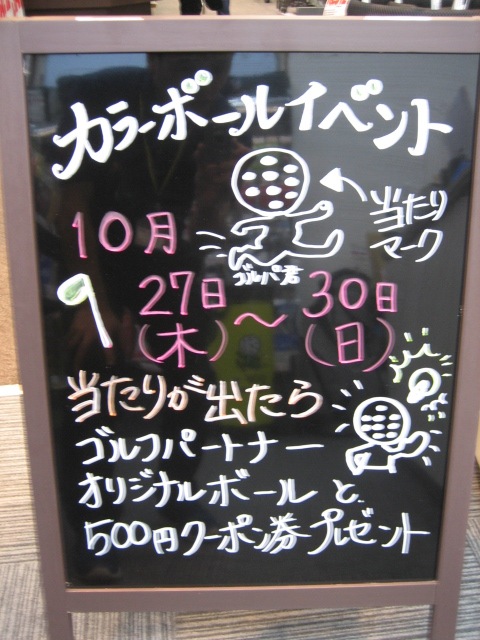 カラーボールイベント
当たり
マーク
ゴルパ君
10月
27日 〜 30日
(木) (日)
当たりが出たら
ゴルフパートナー
オリジナルボールと
500円クーポン券プレゼント